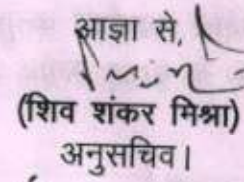 आज्ञा से,
(शिव शंकर मिश्रा)
अनुसचिव।